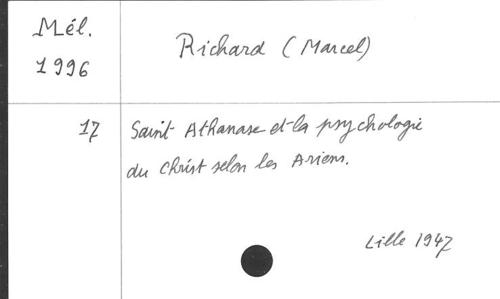 Mél.
1996
Richard (Marcel)
17
Saint Athanase et la psychologie
du Christ selon les Ariens.
Lille 1947